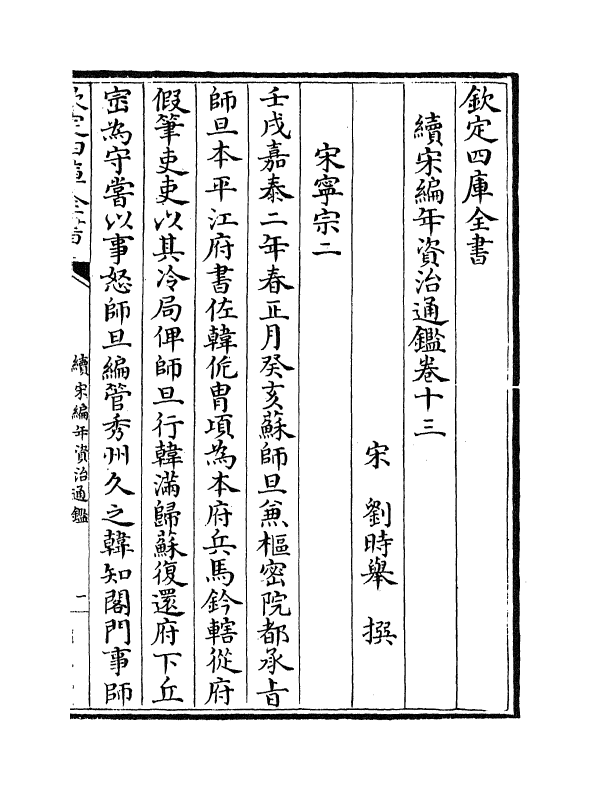 欽定四庫全書
續宋編年資治通鑑卷十三
宋 劉時舉 撰
宋寧宗二
壬戌嘉泰二年春正月癸亥蘇師旦兼樞密院都承旨
師旦本平江府書佐韓侂冑項為本府兵馬鈐轄從府
假筆吏吏以其冷局俾師旦行韓滿歸蘇復還府下丘
崈為守嘗以事怒師旦編管秀州久之韓知閣門事師
續宋編年資治通鑑
一